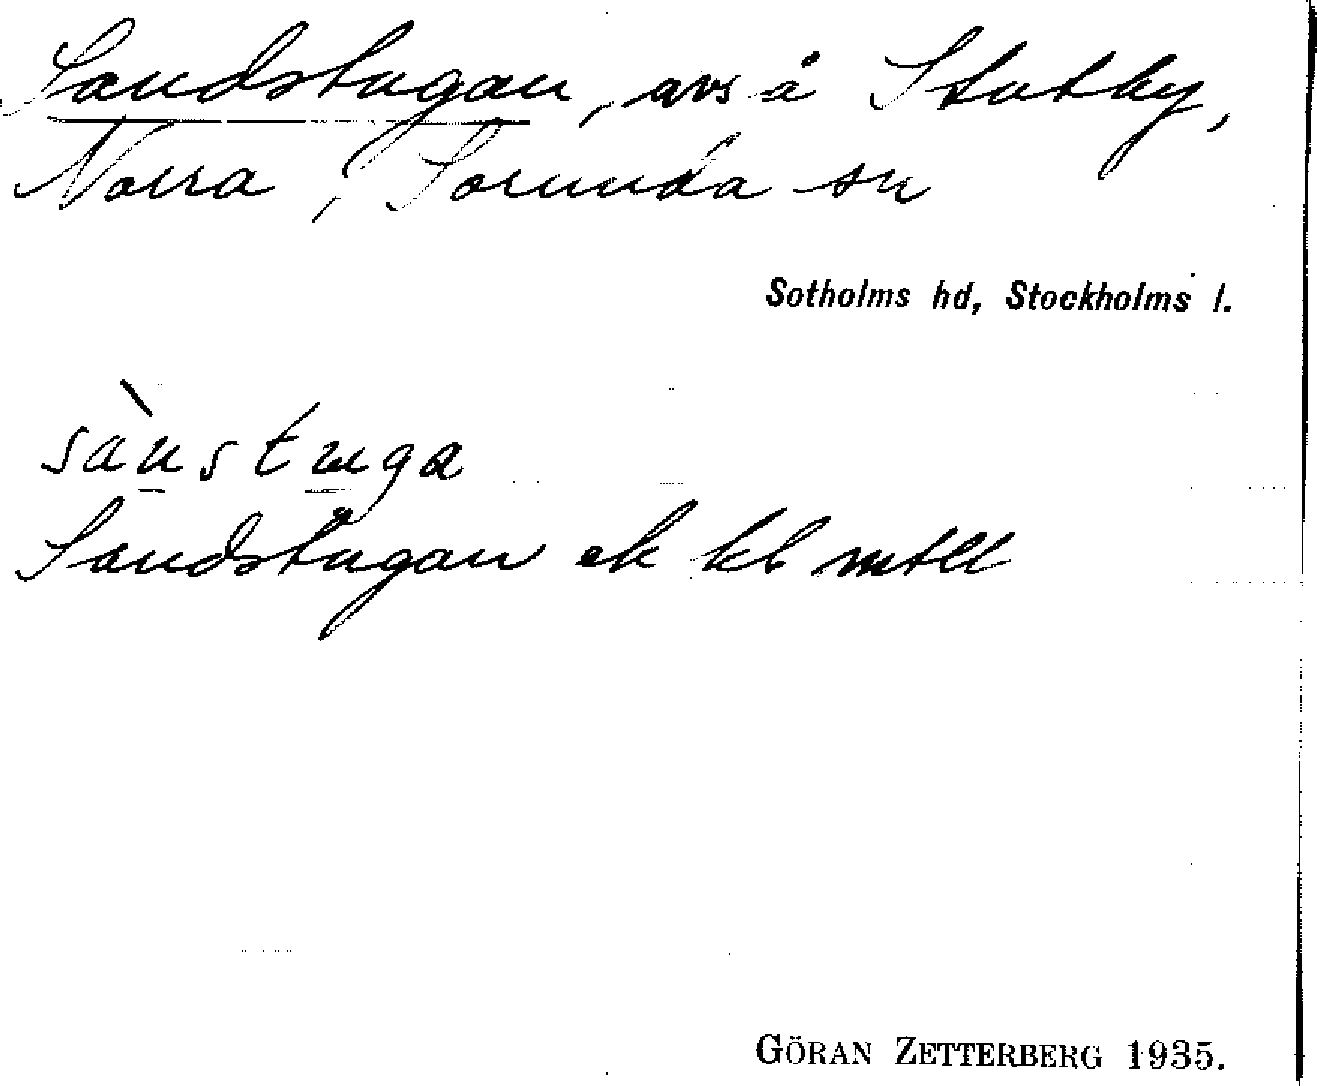 Sandstugan, avs å Stutby,
Norra, Sorunda sn
Sotholms hd, Stockholms l.
sànstuga
Sandstugan ek kb mtll
GÖRAN ZETTERBERG 1935.